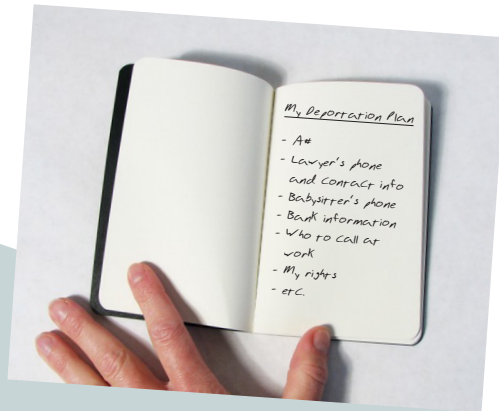 My Deportation Plan
- A#
- Lawyer's phone
and contact info
- Babysitter's phone
- Bank information
- Who to call at
work
- My rights
- etc.